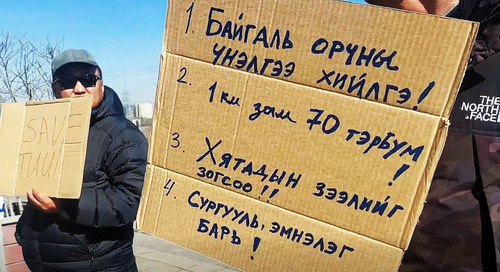 SAVE
TUUL
1. БАЙГАЛЬ ОРЧНЫ
ҮНЭЛГЭЭ ХИЙЛГЭ!
2. 1 км ЗАМ 70 ТЭРБУМ!
3. ХЯТАДЫН ЗЭЭЛИЙГ
ЗОГСОО!!
4. СУРГУУЛЬ, ЭМНЭЛЭГ
БАРЬ!
THE
NORTH
FACE